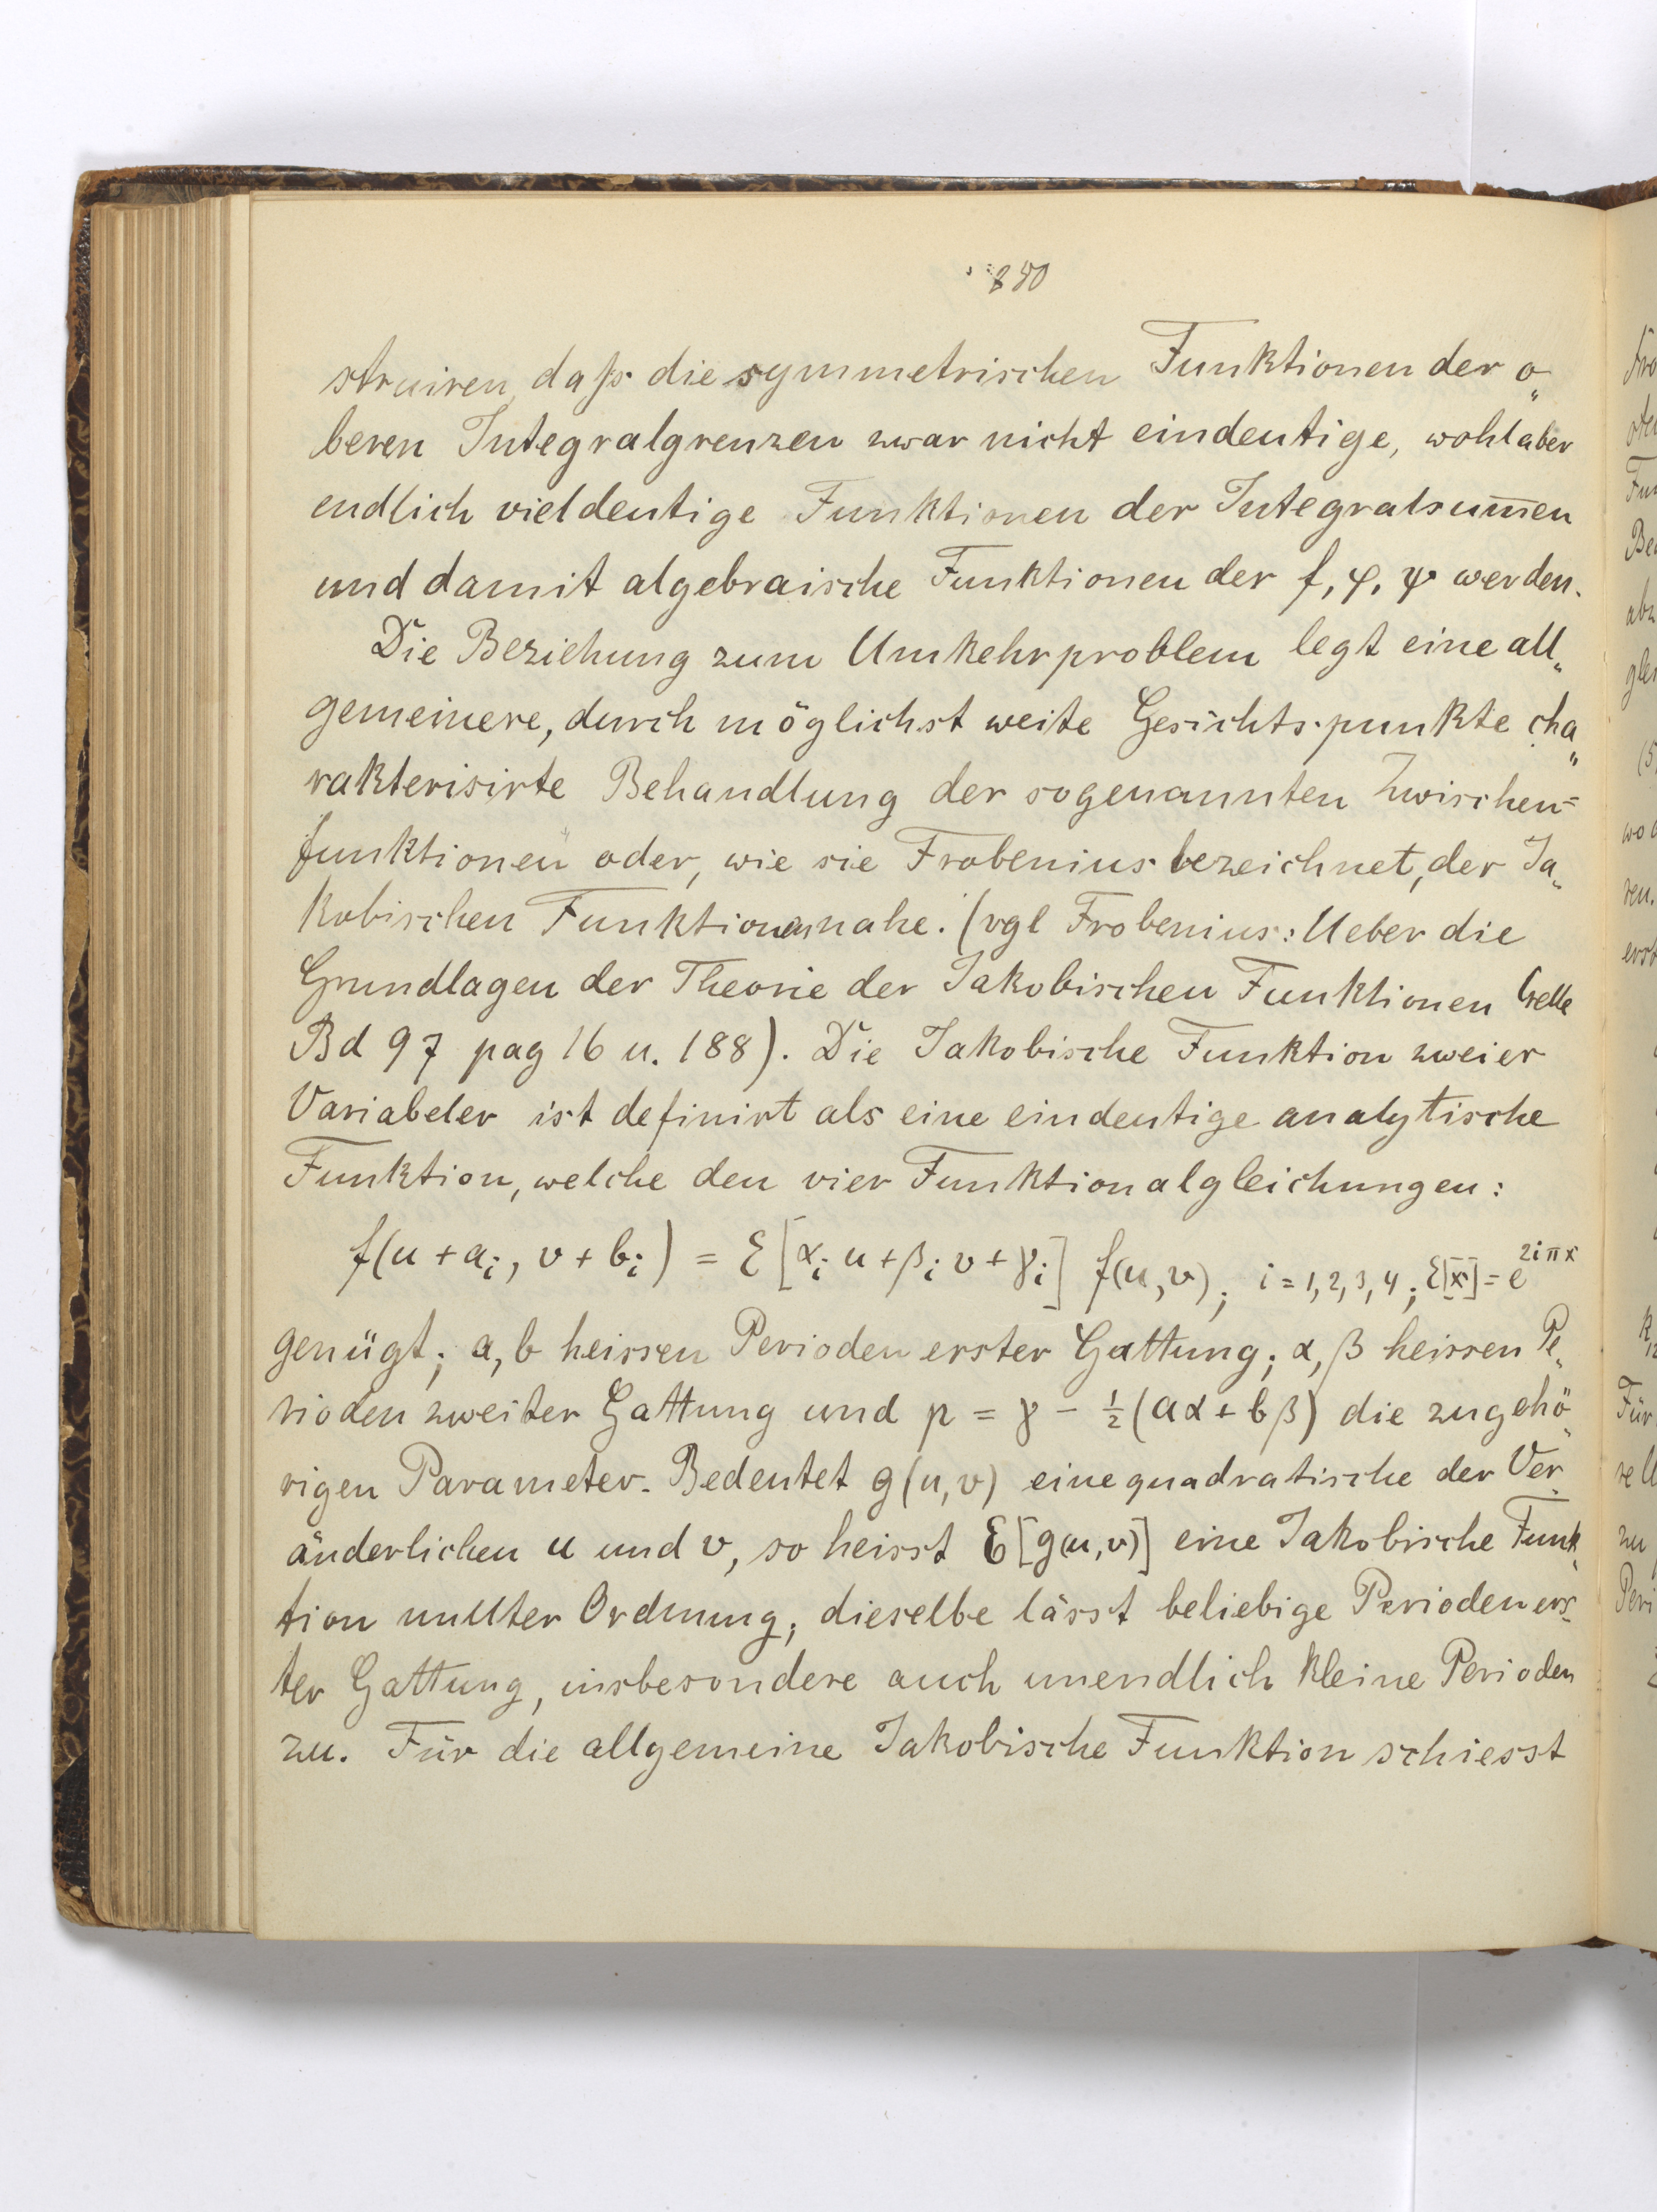 280
struiren, daſs die symmetrischen Funktionen der o„
beren Integralgrenzen zwar nicht eindeutige, wohl aber
endlich vieldeutige Funktionen der Integralsum̅en
und damit algebraische Funktionen der f, φ, ψ werden.
Die Beziehung zum Umkehrproblem legt eine all„
gemeinere, durch möglichst weite Gesichtspunkte cha„
rakterisirte Behandlung der sogenannten Zwischen=
funktionen oder, wie sie Frobenius bezeichnet, der Ja„
kobischen Funktionen nahe. (vgl Frobenius: Ueber die
Grundlagen der Theorie der Jakobischen Funktionen Crelle
Bd 97 pag 16 u. 188). Die Jakobische Funktion zweier
Variabeler ist definirt als eine eindeutige analytische
Funktion, welche den vier Funktionalgleichungen:
f(u + a_i, v + b_i) = ℰ[α_i u + β_i v + γ_i] f(u,v); i = 1, 2, 3, 4; ℰ[x] = e^{2iπx}
genügt; a, b heissen Perioden erster Gattung; α, β heissen Pe„
rioden zweiter Gattung und p = γ - ½(aα + bβ) die zugehö„
rigen Parameter. Bedeutet g(u,v) eine quadratische der Ver„
änderlichen u und v, so heisst ℰ[g(u,v)] eine Jakobische Funk„
tion nullter Ordnung; dieselbe lässt beliebige Perioden ers„
ter Gattung, insbesondere auch unendlich kleine Perioden
zu. Für die allgemeine Jakobische Funktion schiesst